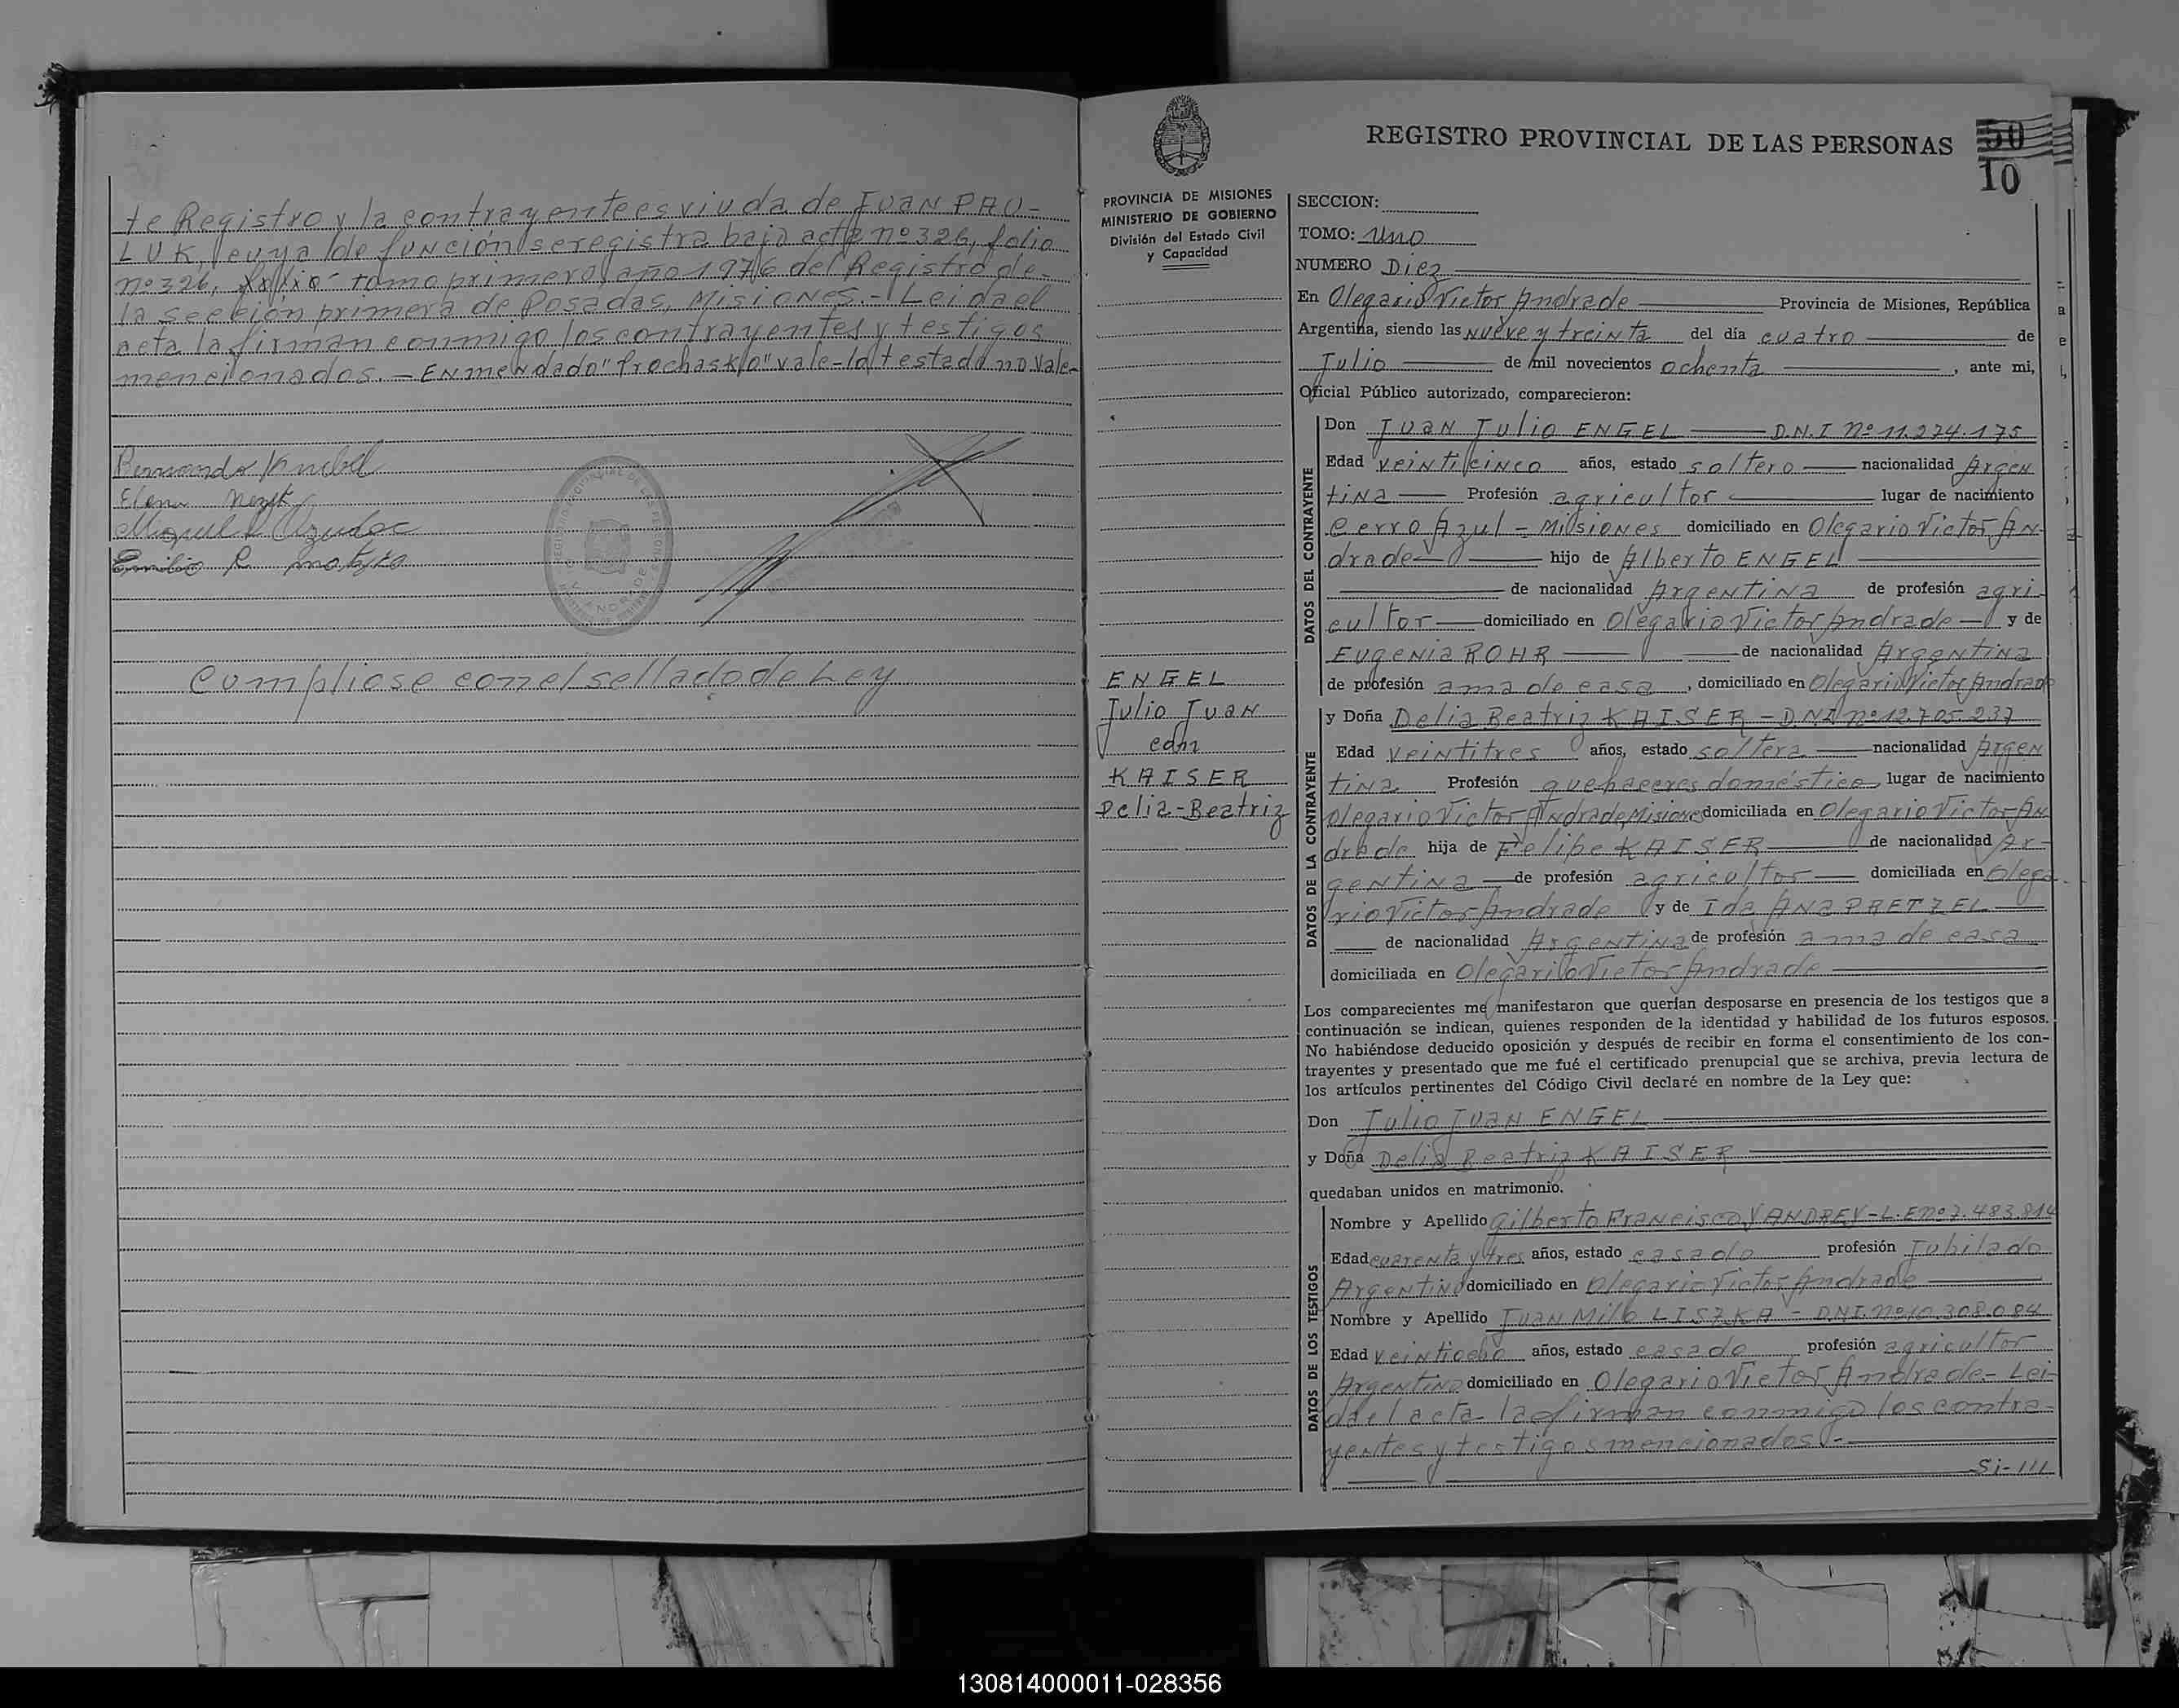 te Registro y la contrayente es viuda de JUAN PAU-
LUK, cuya defunción se registra bajo acta nº 326, folio
nº 326, tomo primero, año 1976 del Registro de
la sección primera de Posadas, Misiones.- Leida el
acta la firman conmigo los contrayentes y testigos
mencionados.- Enmendado "Prochasko" vale-lo testado no vale-
Elena
Emilio R.
Cumpliose con el sellado de Ley
REGISTRO PROVINCIAL DE LAS PERSONAS
50
10
PROVINCIA DE MISIONES
MINISTERIO DE GOBIERNO
División del Estado Civil
y Capacidad
ENGEL
Julio Juan
con
KAISER
Delia-Beatriz
SECCION:
TOMO: Uno
NUMERO Diez
En Olegario Victor Andrade Provincia de Misiones, República
Argentina, siendo las nueve y treinta del día cuatro de
Julio de mil novecientos ochenta, ante mi,
Oficial Público autorizado, comparecieron:
DATOS DEL CONTRAYENTE
Don Juan Julio ENGEL D.N.I nº 11.274.175
Edad veinticinco años, estado soltero nacionalidad Argen
tina Profesión agricultor lugar de nacimiento
Cerro Azul - Misiones domiciliado en Olegario Victor An-
drade hijo de Alberto ENGEL
de nacionalidad Argentina de profesión agri-
cultor domiciliado en Olegario Victor Andrade y de
Eugenia ROHR de nacionalidad Argentina
de profesión ama de casa, domiciliado en Olegario Victor Andrade
DATOS DE LA CONTRAYENTE
y Doña Delia Beatriz KAISER - D.N.I nº 12.705.237
Edad veintitres años, estado soltera nacionalidad Argen
tina Profesión quehaceres doméstico lugar de nacimiento
Olegario Victor Andrade, Misiones domiciliada en Olegario Victor An
drade hija de Felipe KAISER de nacionalidad Ar-
gentina de profesión agricultor domiciliada en Olega
rio Victor Andrade y de Ida Ana PRETZEL
de nacionalidad Argentina de profesión ama de casa
domiciliada en Olegario Victor Andrade
Los comparecientes me manifestaron que querían desposarse en presencia de los testigos que a
continuación se indican, quienes responden de la identidad y habilidad de los futuros esposos.
No habiéndose deducido oposición y después de recibir en forma el consentimiento de los con-
trayentes y presentado que me fué el certificado prenupcial que se archiva, previa lectura de
los artículos pertinentes del Código Civil declaré en nombre de la Ley que:
Don Julio Juan ENGEL
y Doña Delia Beatriz KAISER
quedaban unidos en matrimonio.
DATOS DE LOS TESTIGOS
Nombre y Apellido Gilberto Francisco VANDREY - L.E nº 7.483.814
Edad cuarenta y tres años, estado casado profesión Jubilado
Argentino domiciliado en Olegario Victor Andrade
Nombre y Apellido Juan Milo LISZKA - D.N.I. nº 10.308.084
Edad veintiocho años, estado casado profesión agricultor
Argentino domiciliado en Olegario Victor Andrade.- Lei-
da el acta la firman conmigo los contra-
yentes y testigos mencionados.-
Si-///
130814000011-028356